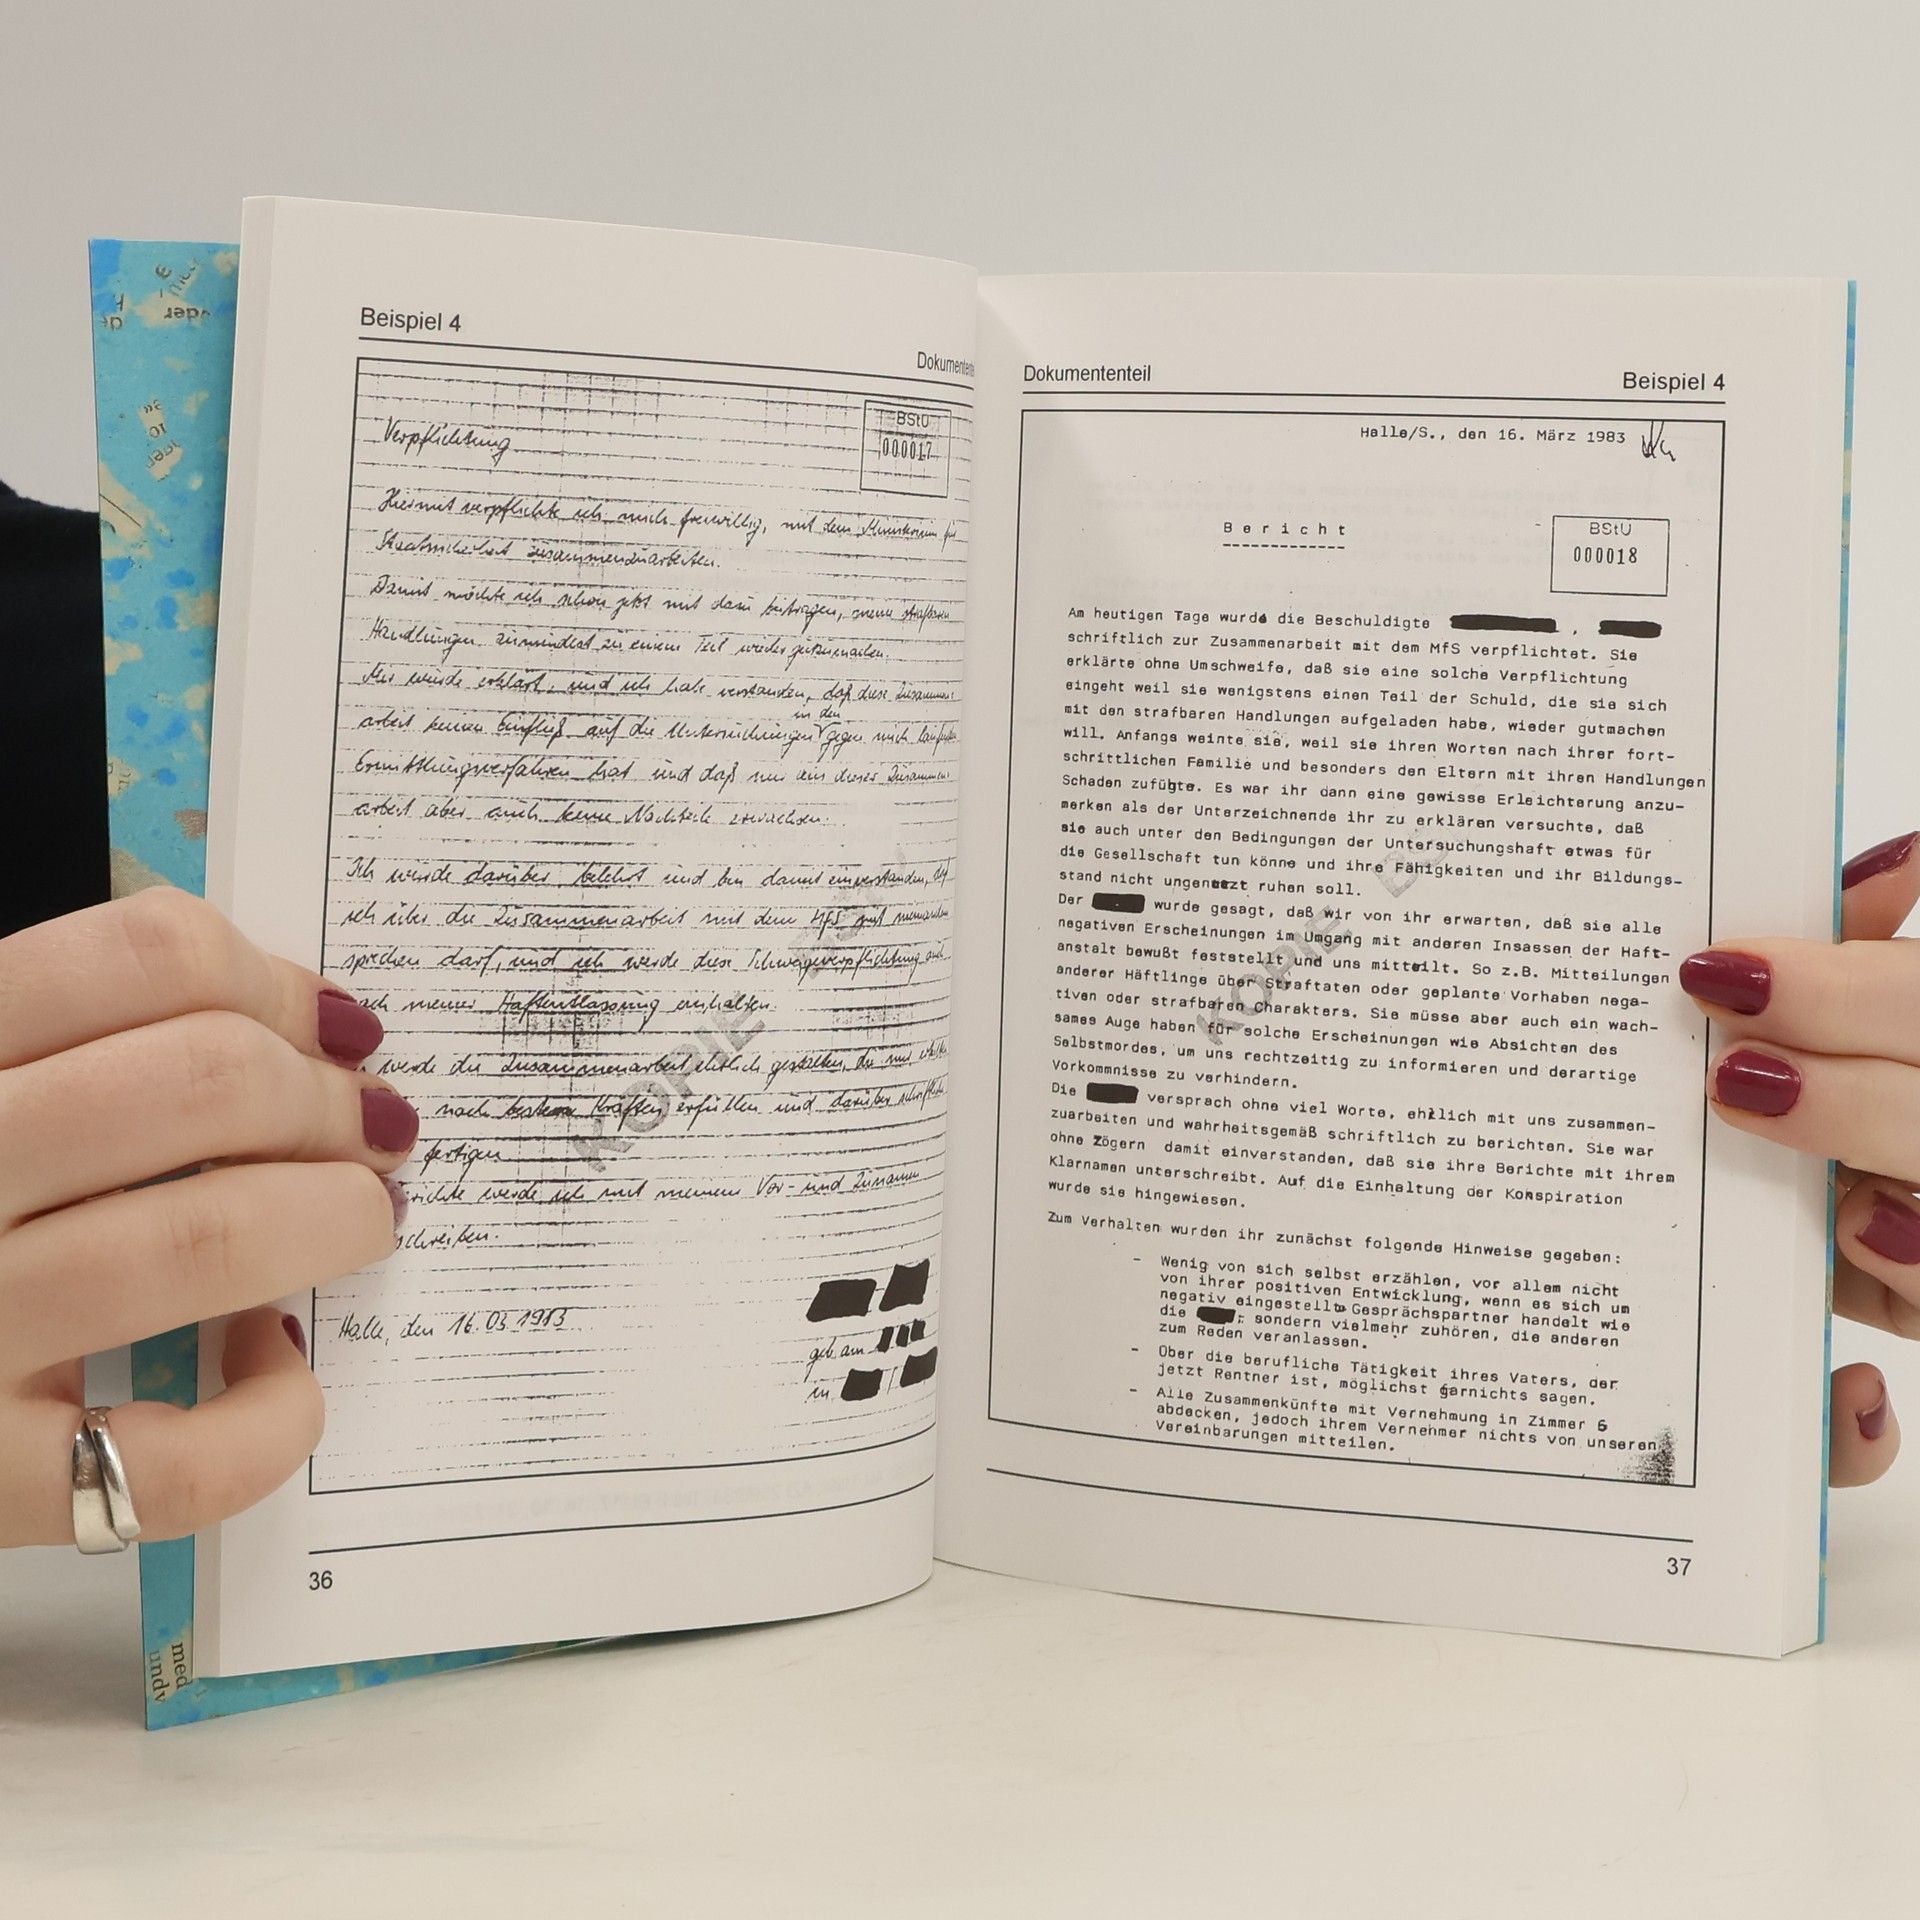 Beispiel 4
Dokumententei
BStU
000017
Verpflichtung
Hiermit verpflichte ich mich freiwillig, mit dem Ministerium für
Staatssicherheit zusammenzuarbeiten.
Damit möchte ich schon jetzt mit dazu beitragen, meine strafbaren
Handlungen zumindest zu einem Teil wiedergutzumachen.
Mir wurde erklärt, und ich habe verstanden, daß diese Zusammen-
arbeit keinen Einfluß auf die Untersuchungen in den gegen mich laufenden
Ermittlungsverfahren hat und daß mir aus dieser Zusammen-
arbeit aber auch keine Nachteile erwachsen.
Ich wurde darüber belehrt und bin damit einverstanden, daß
ich über die Zusammenarbeit mit dem MfS mit niemanden
sprechen darf, und ich werde diese Schweigeverpflichtung auch
ach meiner Haftentlassung einhalten.
werde die Zusammenarbeit ehrlich gestalten, die mir
nach besten Kräften erfüllen und darüber schriftliche
fertigen
richte werde ich mit meinem Vor- und Zunamen
schreiben.
Halle, den 16.03.1983
geb. am
in /
KOPIE BStU
36
Dokumententeil
Beispiel 4
Halle/S., den 16. März 1983
Bericht
BStU
000018
Am heutigen Tage wurde die Beschuldigte ,
schriftlich zur Zusammenarbeit mit dem MfS verpflichtet. Sie
erklärte ohne Umschweife, daß sie eine solche Verpflichtung
eingeht weil sie wenigstens einen Teil der Schuld, die sie sich
mit den strafbaren Handlungen aufgeladen habe, wieder gutmachen
will. Anfangs weinte sie, weil sie ihren Worten nach ihrer fort-
schrittlichen Familie und besonders den Eltern mit ihren Handlungen
Schaden zufügte. Es war ihr dann eine gewisse Erleichterung anzu-
merken als der Unterzeichnende ihr zu erklären versuchte, daß
sie auch unter den Bedingungen der Untersuchungshaft etwas für
die Gesellschaft tun könne und ihre Fähigkeiten und ihr Bildungs-
stand nicht ungenutzt ruhen soll.
Der wurde gesagt, daß wir von ihr erwarten, daß sie alle
negativen Erscheinungen im Umgang mit anderen Insassen der Haft-
anstalt bewußt feststellt und uns mitteilt. So z.B. Mitteilungen
anderer Häftlinge über Straftaten oder geplante Vorhaben nega-
tiven oder strafbaren Charakters. Sie müsse aber auch ein wach-
sames Auge haben für solche Erscheinungen wie Absichten des
Selbstmordes, um uns rechtzeitig zu informieren und derartige
Vorkommnisse zu verhindern.
Die versprach ohne viel Worte, ehrlich mit uns zusammen-
zuarbeiten und wahrheitsgemäß schriftlich zu berichten. Sie war
ohne Zögern damit einverstanden, daß sie ihre Berichte mit ihrem
Klarnamen unterschreibt. Auf die Einhaltung der Konspiration
wurde sie hingewiesen.
Zum Verhalten wurden ihr zunächst folgende Hinweise gegeben:
- Wenig von sich selbst erzählen, vor allem nicht
von ihrer positiven Entwicklung, wenn es sich um
negativ eingestellte Gesprächspartner handelt wie
die , sondern vielmehr zuhören, die anderen
zum Reden veranlassen.
- Über die berufliche Tätigkeit ihres Vaters, der
jetzt Rentner ist, möglichst garnichts sagen.
- Alle Zusammenkünfte mit Vernehmung in Zimmer 6
abdecken, jedoch ihrem Vernehmer nichts von unseren
Vereinbarungen mitteilen.
KOPIE B
37
med
undv